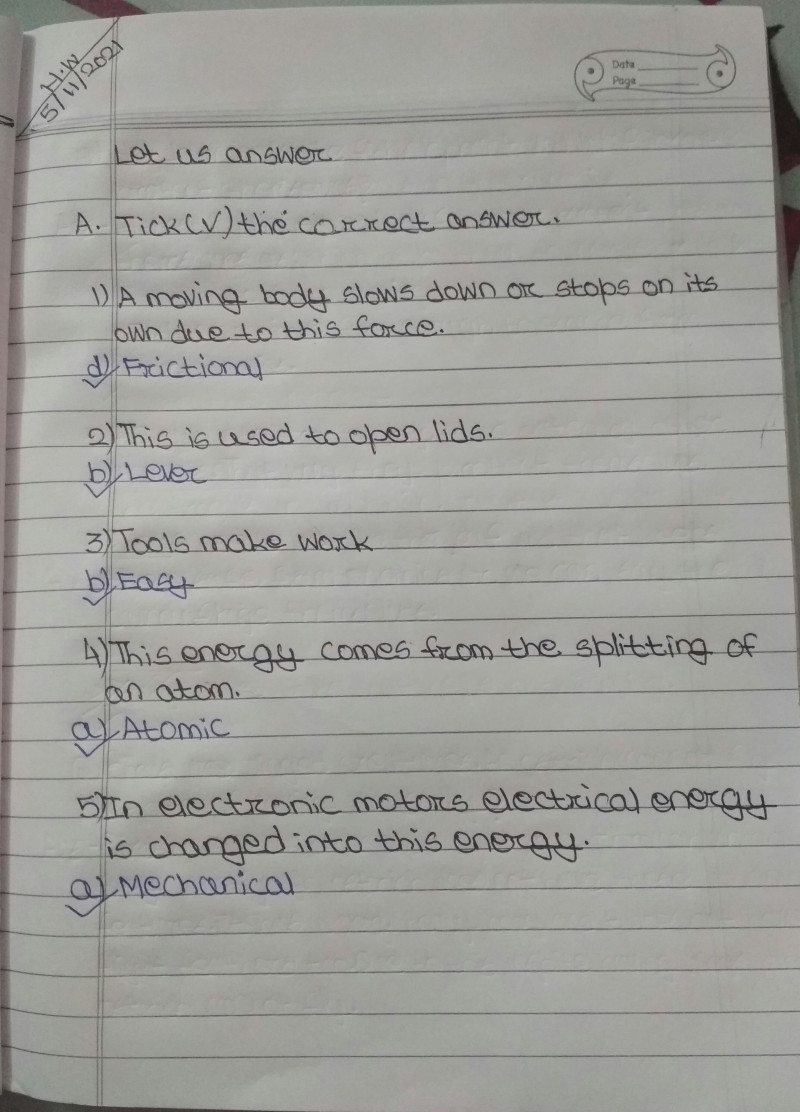 H.W
5/11/2021
Date
Page
Let us answer
A. Tick(√) the correct answer.
1) A moving body slows down or stops on its
own due to this force.
d) Frictional
2) This is used to open lids.
b) Lever
3) Tools make work
b) Easy
4) This energy comes from the splitting of
an atom.
a) Atomic
5) In electronic motors electrical energy
is changed into this energy.
a) Mechanical